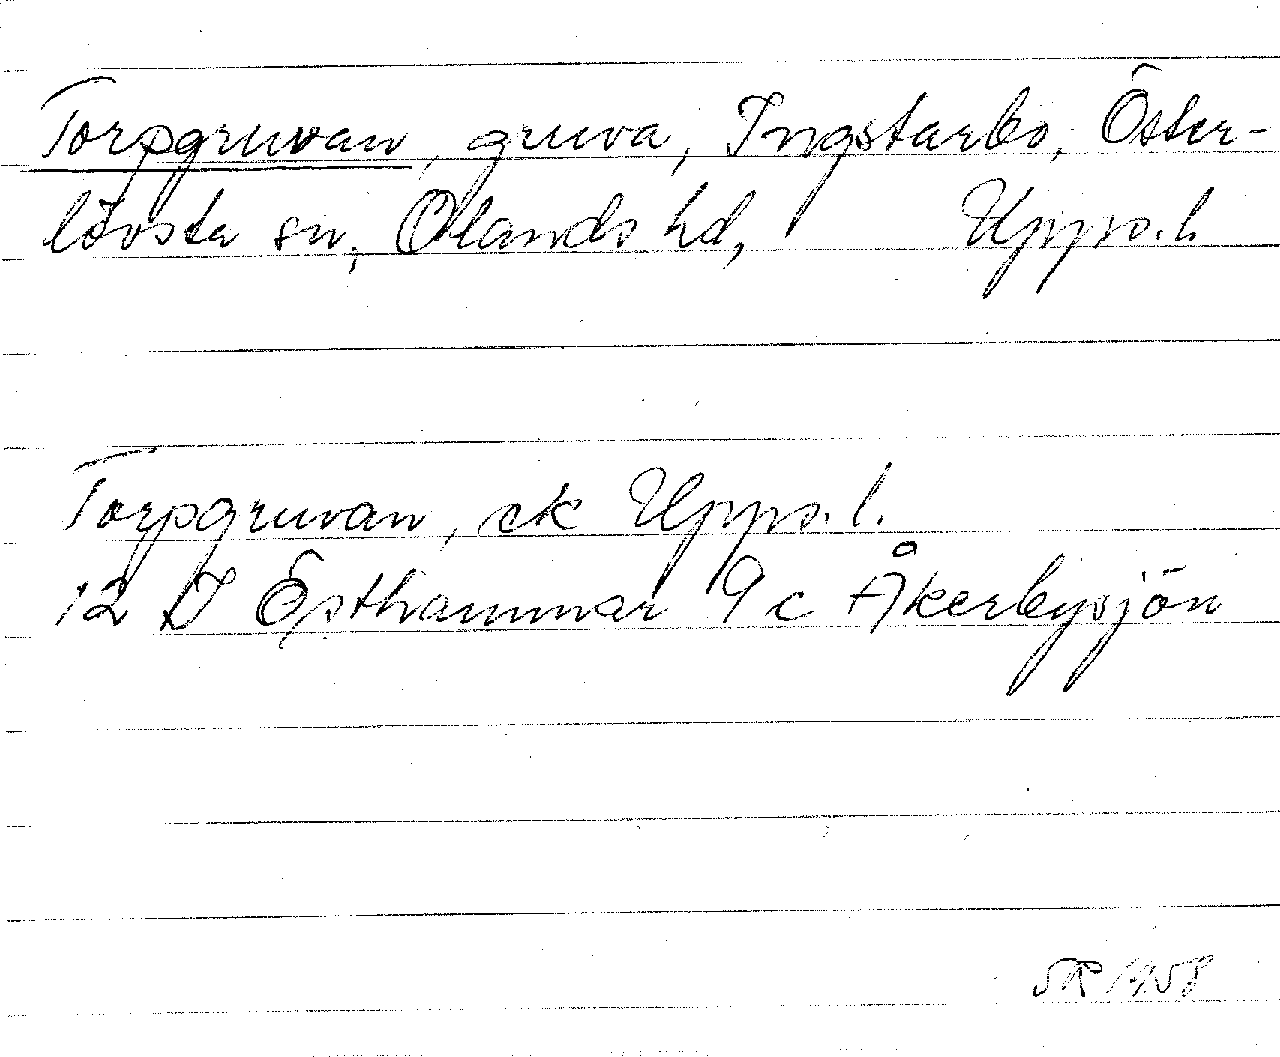 Torpgruvan, gruva, Ingstarbo, Öster-
lövsta sn, Olands hd, Upps.l.
Torpgruvan, ek Upps.l.
12 I Östhammar 9 c Åkerbysjön
SR 1958